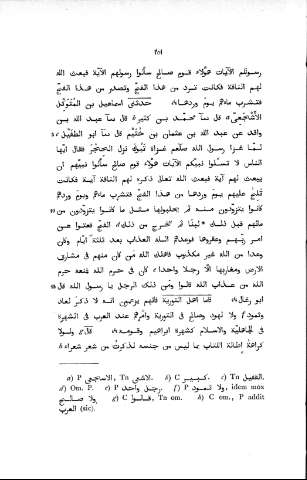 ٢٥١
رسولكم الآيات هؤلاء قوم صالح سألوا رسولهم الآية فبعث الله
لهم الناقة فكانت ترد من هذا الفجّ وتصدر من هذا الفجّ
فتشرب ماءهم يوم وردها، حدثنى اسماعيل بن المتوكّل
الأشجعىّ a قال سآ محمد بن كثير b قال سآ عبد الله بن
واقد عن عبد الله بن عثمان بن خُثَيْم قال سآ ابو الطفيل c قال
لمّا غزا رسول الله صلّعم غزاة تبوك نزل الحجر فقال أيّها
الناس لا تسألوا نبيّكم الآيات هؤلاء قوم صالح سألوا نبيهم أن
يبعث لهم آية فبعث الله تعالى ذكره لهم الناقة آية فكانت
تلج عليهم يوم وردها من هذا الفجّ فتشرب ماءهم ويوم وردهم
كانوا يتزوّدون منه ثم يحلبونها مثل ما كانوا يتزوّدون من
مائهم قبل ذلك لبنًا ثم تخرج من ذلك الفجّ فعتوا عن
امر ربّهم وعقروها فوعدهم الله العذاب بعد ثلثة ايّام وكان
وعدا من الله غير مكذوب فاهلك الله من كان منهم فى مشارق
الارض ومغاربها الّا رجلا واحدا e كان فى حرم الله فمنعه حرم
الله من عذاب الله قالوا ومَن ذلك الرجل يا رسول الله قال
ابو رغال، فامّا اهل التورية فانّهم يزعمون انه لا ذكر لعاد
وثمود f ولا لهود وصالح فى التورية وامرهم عند العرب فى الشهرة
فى الجاهليّة والاسلام كشهرة ابراهيم وقومه، قال g ولولا
كراهة اطالة الكتاب بما ليس من جنسه لذكرتُ من شعر شعراء h
a) P الاسجعى, Tn لاشجى. b) C كبير. c) Tn العقيل.
d) Om. P. e) P رجل واحد. f) P ولا ثمود, idem mox
ولا صالح. g) C قالوا, Tn om. h) C om., P addit
العرب (sic).